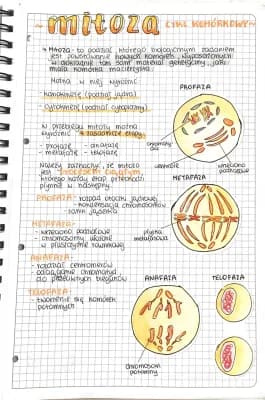 ~mitoza~
CYKL KOMÓRKOWY~
• MITOZA - to podział, którego biologicznym zadaniem
jest powstawanie nowych komórek wyposażonych
w dokładnie taki sam materiał genetyczny, jaki
miała komórka macierzysta.
Można w niej wyróżnić:
- kariokinezę (podział jądra)
- cytokinezę (podział cytoplazmy)
W przebiegu mitozy można
wyróżnić 4 zasadnicze etapy:
- profazę - anafazę
- metafazę - telofazę
Należy zaznaczyć, że mitoza
jest procesem ciągłym,
którego każdy etap przechodzi
płynnie w następny.
PROFAZA:
- rozpad otoczki jądrowej
- kondensacja chromosomów
- zanik jąderka
METAFAZA:
- wrzeciono podziałowe
- chromosomy ułożone
w płaszczyźnie równikowej
ANAFAZA:
- rozdział centromerów
- odciąganie chromatyd
do przeciwnych biegunów
TELOFAZA:
- tworzenie się komórek
potomnych
PROFAZA
chromosomy
centriole
wrzeciono
podziałowe
METAFAZA
płytka
metafazowa
ANAFAZA
chromosom
potomny
TELOFAZA